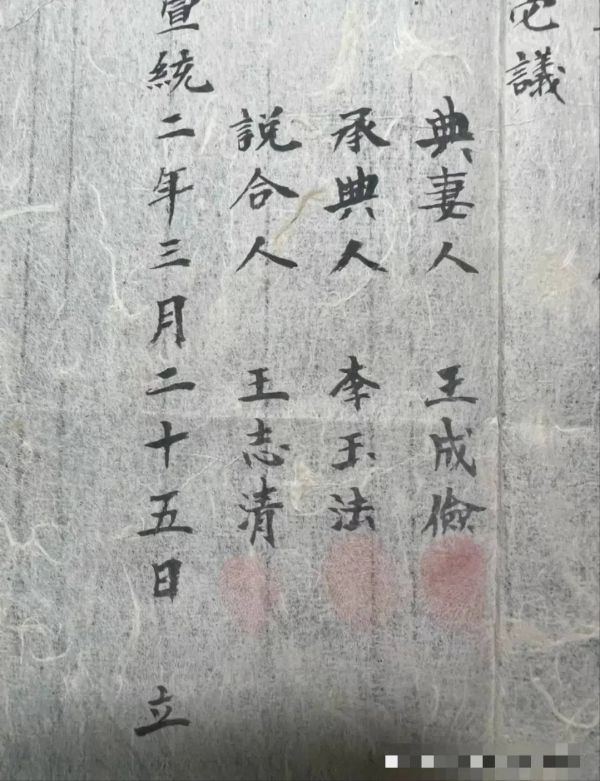 議
典妻人 王成儉
承典人 李玉法
説合人 王志清
宣統二年三月二十五日 立